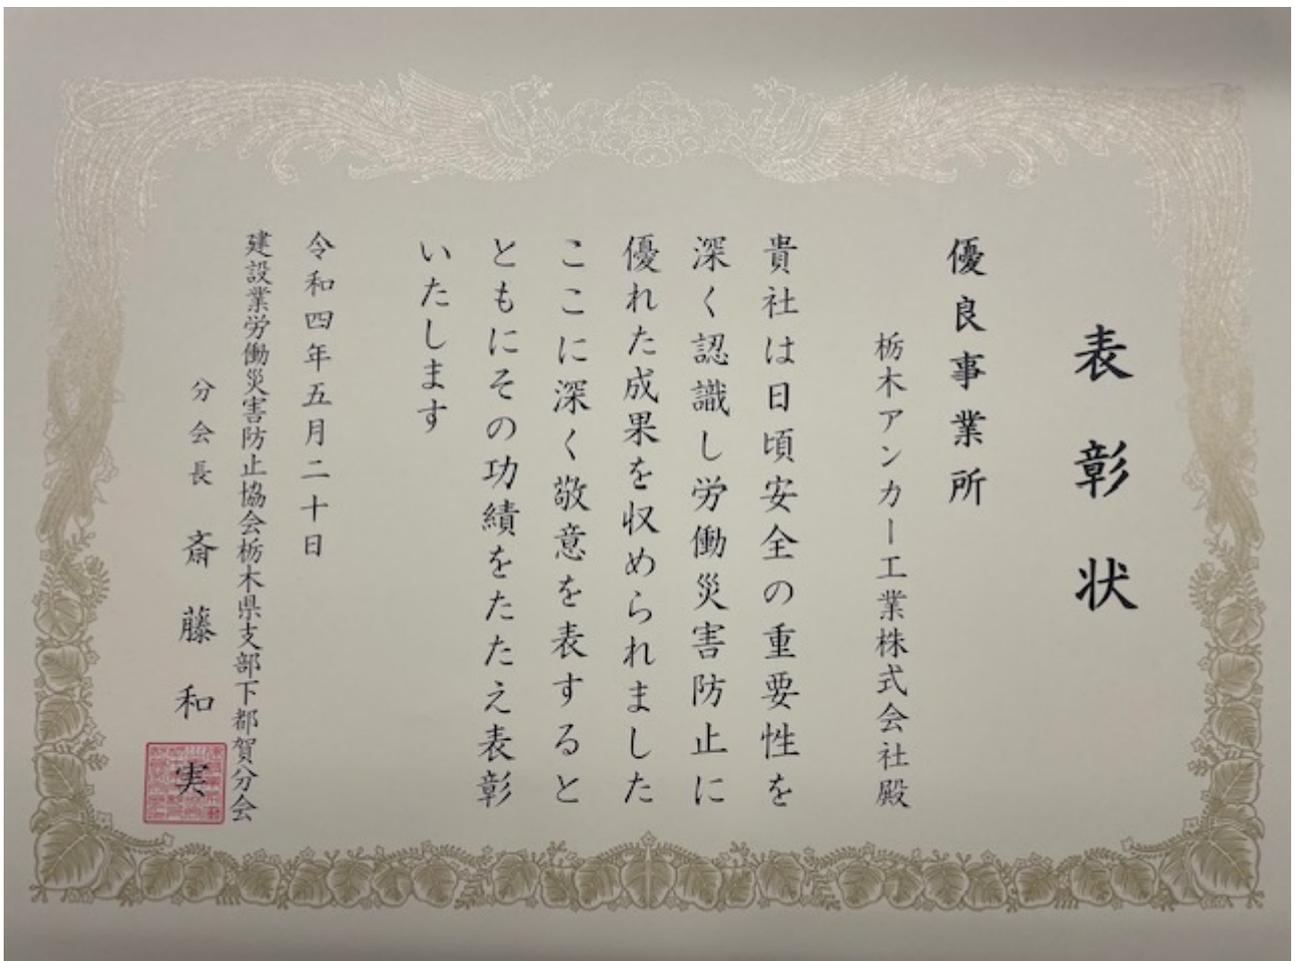 表彰状
優良事業所
栃木アンカー工業株式会社殿
貴社は日頃安全の重要性を
深く認識し労働災害防止に
優れた成果を収められました
ここに深く敬意を表すると
ともにその功績をたたえ表彰
いたします
令和四年五月二十日
建設業労働災害防止協会栃木県支部下都賀分会
分会長 斎藤和実